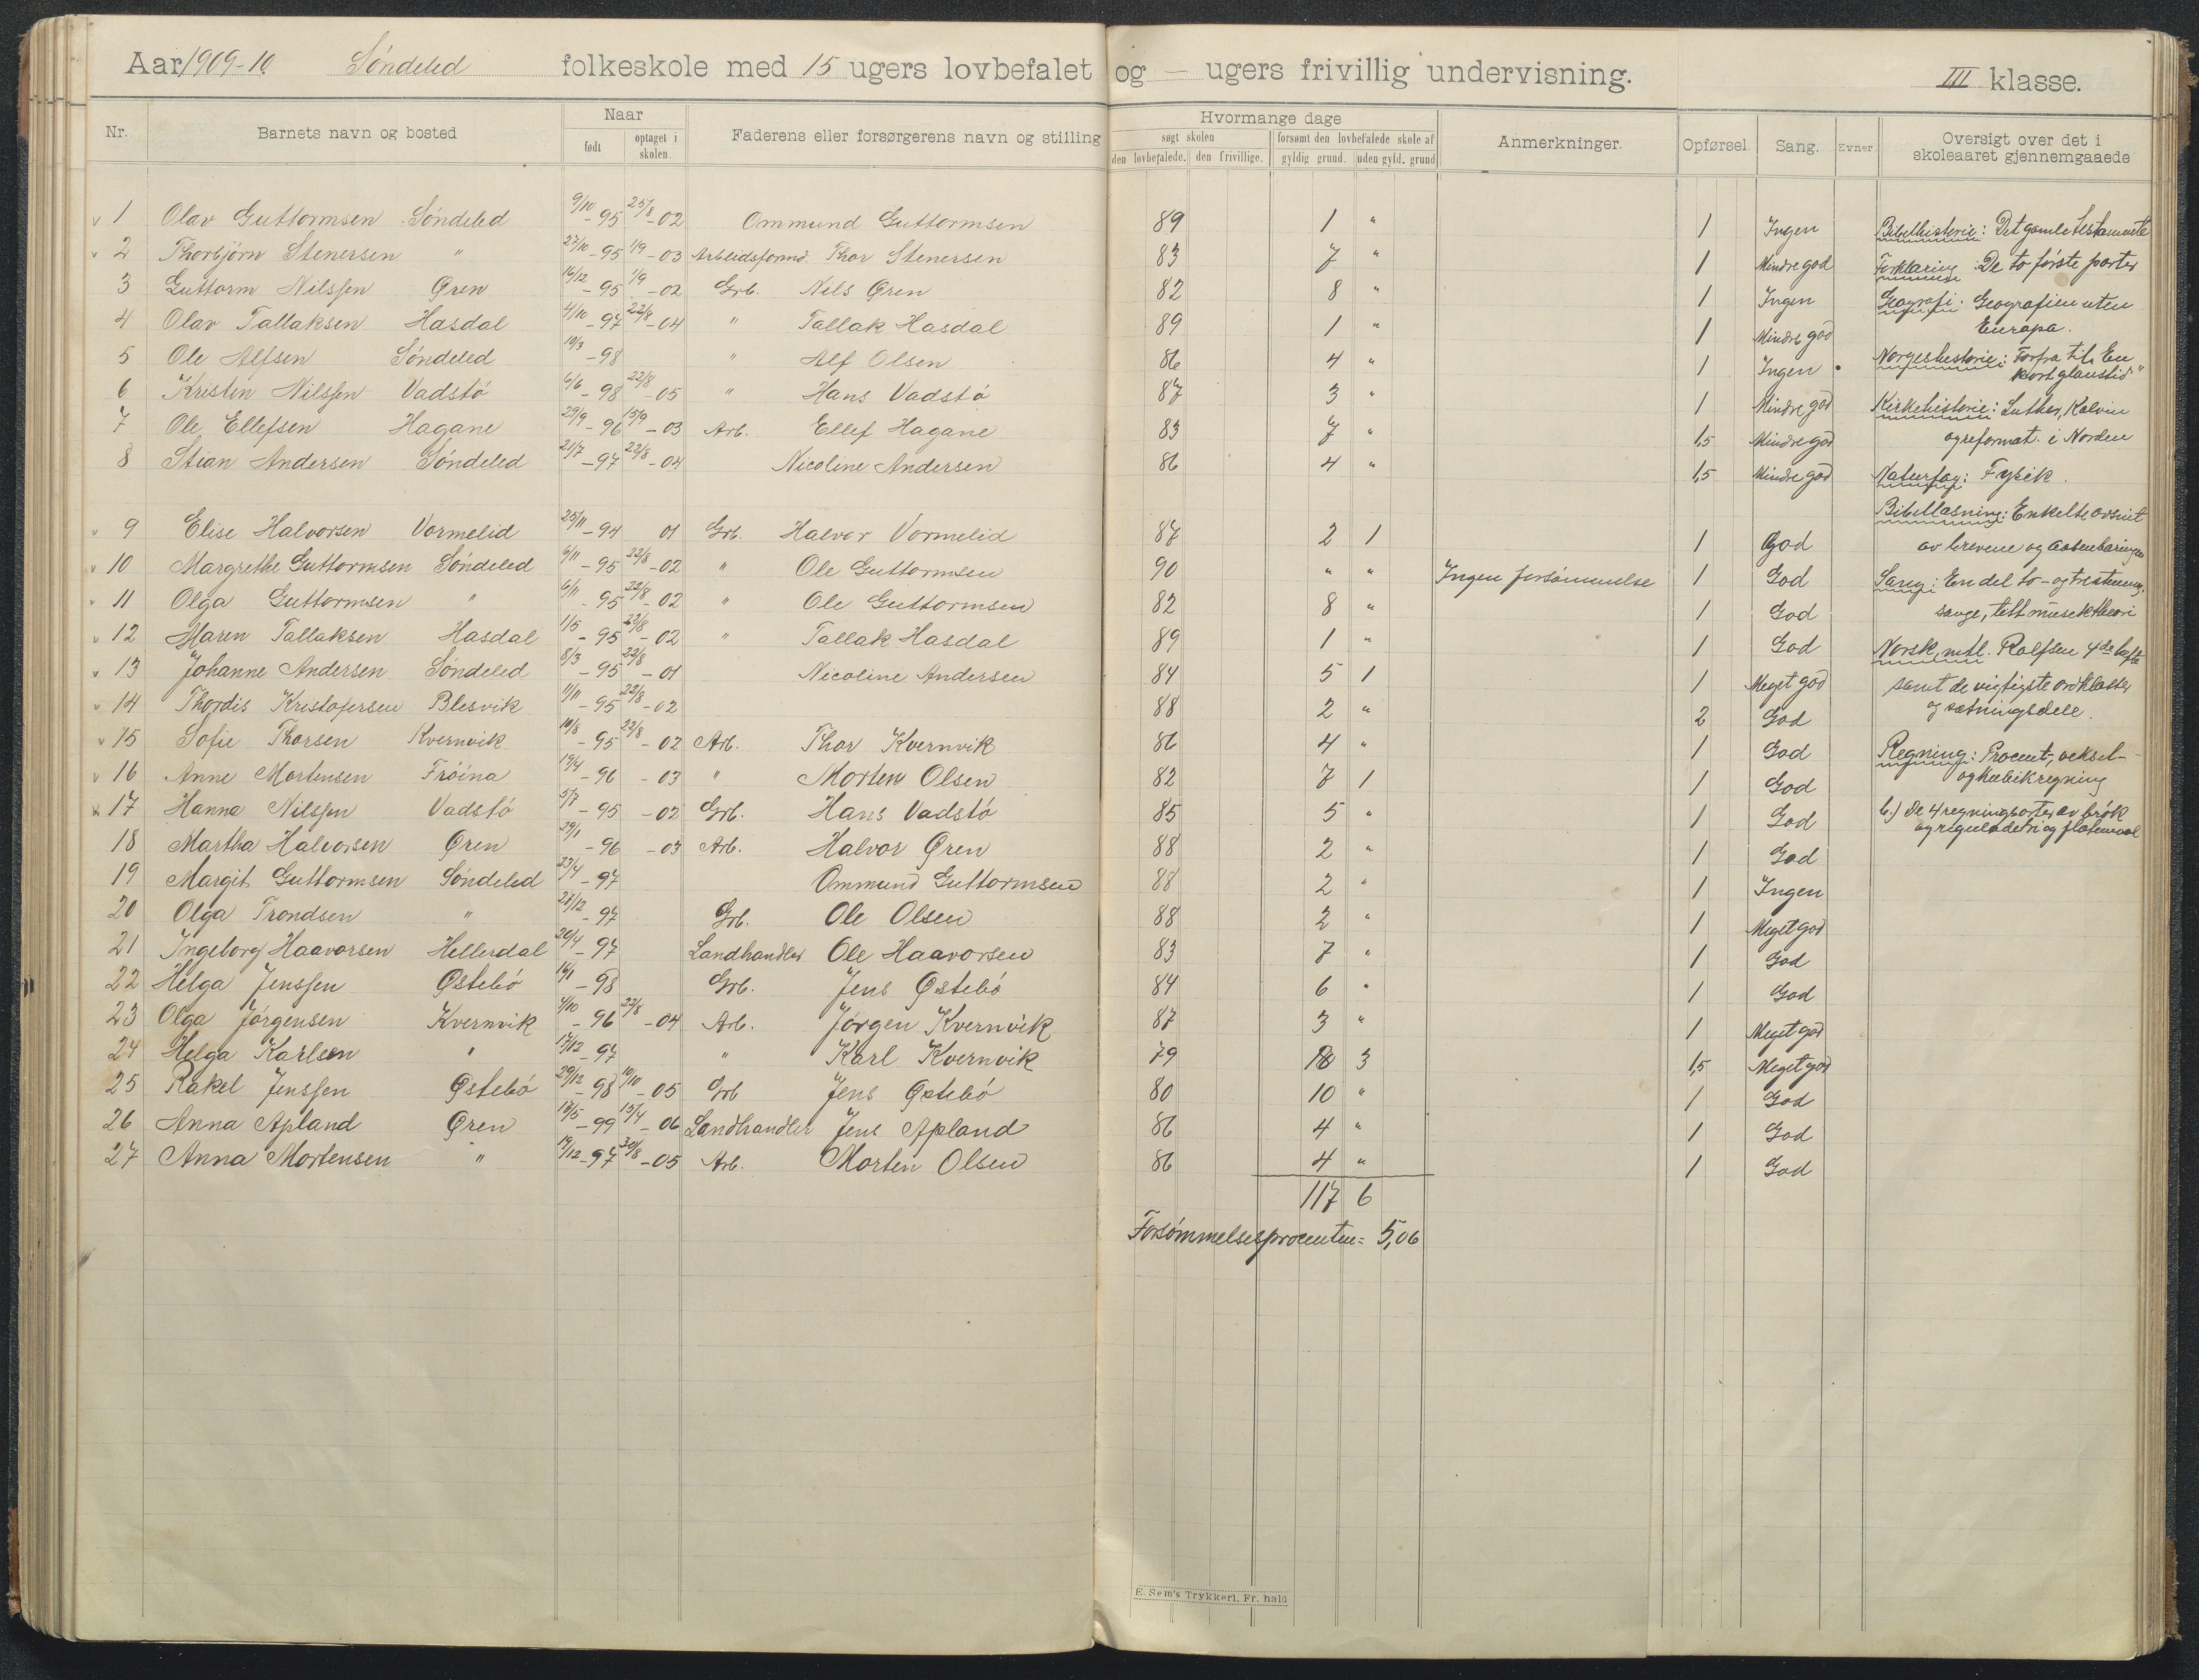 Aar 1909-10. Søndeled folkeskole med 15 ugers lovbefalet og — ugers frivillig undervisning. III klasse.
Nr. Barnets navn og bosted Naar født optaget i skolen. Faderens eller forsørgerens navn og stilling Hvormange dage søgt skolen den lovbefalede. den frivillige. forsømt den lovbefalede skole af gyldig grund. uden gyld. grund Anmerkninger. Opførsel. Sang. Evner Oversigt over det i skoleaaret gjennemgaaede
1 Olav Guttormsen Søndeled 9/10-95 25/8-02 Ommund Guttormsen 89 1 " 1 Ingen Bibelhistorie: Det gamle testamente
2 Thorbjørn Stenersen " 27/10-95 1/9-03 Arbeidsformd. Thor Stenersen 83 7 " 1 Mindre god Forklaring: De to første parter
3 Guttorm Nilssen Øren 16/12-95 1/9-02 Grb. Nils Øren 82 8 " 1 Ingen Geografi: Geografien uten
4 Olav Tallaksen Hasdal 4/10-97 22/8-04 " Tallak Hasdal 89 1 " 1 Mindre god Europa.
5 Ole Alfsen Søndeled 10/3-98 " Alf Olsen 86 4 " 1 Ingen Norgeshistorie: Forfra til "En
kort glanstid"
6 Kristen Nilssen Vadstö 6/6-98 22/8-05 " Hans Vadstö 87 3 " 1 Mindre god Kirkehistorie: Luther, Kalvin
7 Ole Ellefsen Hagane 29/9-96 15/9-03 Arb. Ellef Hagane 83 7 " 1,5 Mindre god og reformat. i Norden
8 Stian Andersen Søndeled 21/7-97 22/8-04 Nicoline Andersen 86 4 " 1,5 Mindre god Naturfag: Fysik.
Bibellæsning: Enkelte avsnit
9 Elise Halvorsen Vormelid 25/11-94 01 Grb. Halvor Vormelid 87 2 1 1 God av brevene og aabenbaringen
10 Margrethe Guttormsen Søndeled 6/11-95 22/8-02 " Ole Guttormsen 90 " " Ingen forsømmelse 1 God Sang: En del to- og trestemmig.
11 Olga Guttormsen " 6/11-95 22/8-02 " Ole Guttormsen 82 8 " 1 God sange, litt musiktheori
12 Maren Tallaksen Hasdal 1/5-95 22/8-02 " Tallak Hasdal 89 1 " 1 God Norsk, mtl. Rolfsen 4de hefte
13 Johanne Andersen Søndeled 8/3-95 22/8-01 Nicoline Andersen 84 5 1 1 Meget god samt de vigtigste ordklasser
14 Thordis Kristofersen Blesvik 11/11-95 22/8-02 88 2 " 2 God og sætningsdele.
15 Sofie Thorsen Kvernvik 10/8-95 22/8-02 Arb. Thor Kvernvik 86 4 " 1 God Regning: Procent-, veksel-
16 Anne Mortensen Fröina 19/4-96 -03 " Morten Olsen 82 7 1 1 God og kubikregning
17 Hanna Nilssen Vadstö 5/7-95 -02 Grb. Hans Vadstö 85 5 " 1 God b.) De 4 regningsarter av brøk
og reguladetri og flatemaal
18 Martha Halvorsen Øren 29/1-96 -03 Arb. Halvor Øren 88 2 " 1 God
19 Margit Guttormsen Søndeled 23/4-97 Ommund Guttormsen 88 2 " 1 Ingen
20 Olga Trondsen " 27/12-97 Grb. Ole Olsen 88 2 " 1 Meget god
21 Ingeborg Haavorsen Hellerdal 20/4-97 Landhandler Ole Haavorsen 83 7 " 1 God
22 Helga Jenssen Østebö -98 Grb. Jens Østebö 84 6 " 1 God
23 Olga Jørgensen Kvernvik 4/10-96 22/8-04 Arb. Jørgen Kvernvik 87 3 " 1 Meget god
24 Helga Karlsen " 17/12-97 " Karl Kvernvik 79 3 1,5 Meget god
25 Rakel Jenssen Østebö 29/12-98 10/10-05 Grb Jens Østebö 80 10 " 1 God
26 Anna Apland Øren 17/5-99 15/4-06 Landhandler Jens Apland 86 4 " 1 God
27 Anna Mortensen " 19/12-97 30/8-05 Arb. Morten Olsen 86 4 " 1 God
117 6
Forsømmelsesprocenten = 5,06
E. Sem's Trykkeri, Fr. hald